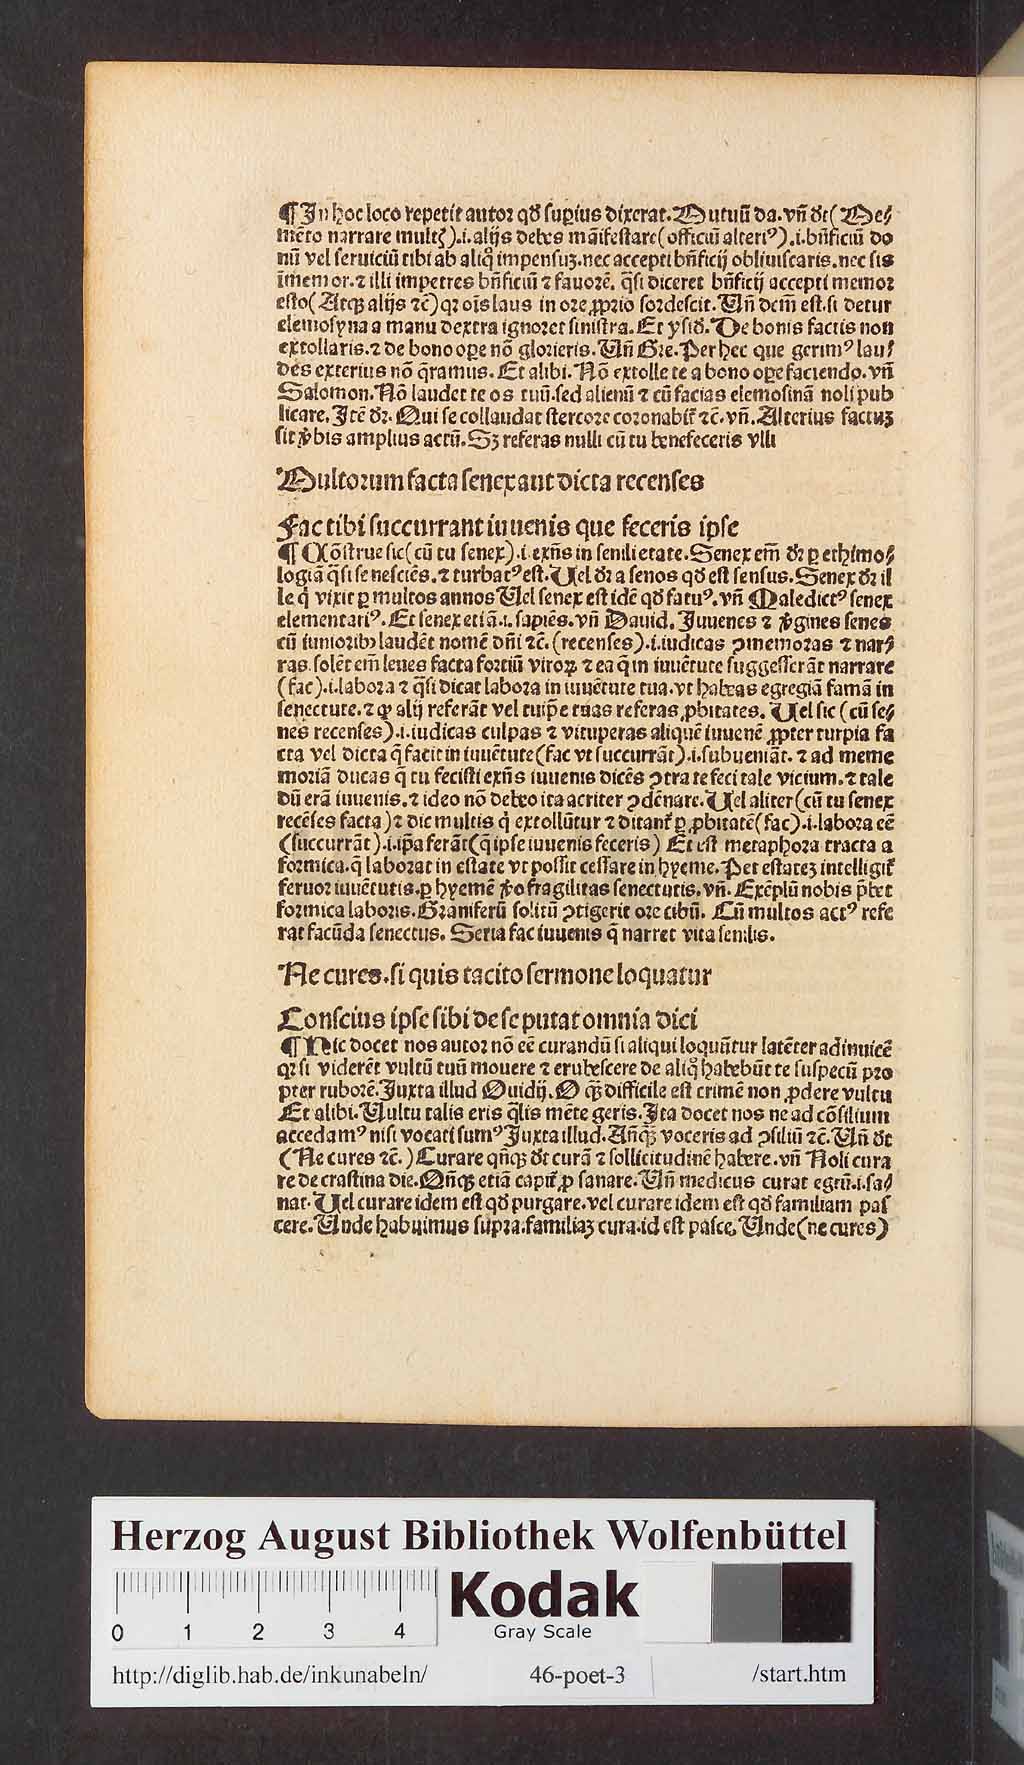 ¶ In hoc loco repetit autor qđ supius dixerat. Mutuū da. vñ đt ( Me⸗
mēto narrare multꝭ ) .i. alijs debes mãifestare ( officiū alteriꝰ ) .i. bñficiū do
nū vel seruiciū tibi ab aliq̊ impensuȝ. nec accepti bñficij obliuiscaris. nec sis
īmemor. ⁊ illi impetres bñficiū ⁊ fauorē. q̄si diceret bñficij accepti memor
esto ( Atqꝫ alijs ⁊c̄ ) qꝛ oīs laus in ore ꝓprio sordescit. Vñ dcm̄ est. si detur
elemosyna a manu dextra ignoret sinistra. Et ysiđ. De bonis factis non
extollaris. ⁊ de bono oꝑe nō glorieris. Vñ Gre. Per hec que gerimꝰ lau⸗
des exterius nō q̄ramus. Et alibi. Nō extolle te a bono oꝑe faciendo. vñ
Salomon. Nō laudet te os tuū. sed alienū ⁊ cū facias elemosinā noli pub
licare. Itē đꝛ. Qui se collaudat stercore coronabit᷑ ⁊c̄. vñ. Alterius factuȝ
sit v̓bis amplius actū. Sȝ referas nulli cū tu benefeceris vlli
Multorum facta senex aut dicta recenses
Fac tibi succurrant iuuenis que feceris ipse
¶ Cōstrue sic ( cū tu senex ) .i. exñs in senili etate. Senex em̄ đꝛ ꝑ ethimo⸗
logiā q̄si se nesciēs. ⁊ turbatꝰ est. Uel đꝛ a senos qđ est sensus. Senex đꝛ il
le q̇ vixit ꝑ multos annos Vel senex est idē qđ fatuꝰ. vñ Maledictꝰ senex
elementariꝰ. Et senex etiā .i. sapiēs. vñ Dauid. Iuuenes ⁊ v̓gines senes
cū iunioribꝫ laudēt nomē dñi ⁊c̄. ( recenses ) .i. iudicas ꝯmemoras ⁊ nar⸗
ras. solēt em̄ leues facta fortiū viroꝝ ⁊ ea q̄ in iuuētute suggesserāt narrare
( fac ) .i. labora ⁊ q̄si dicat labora in iuuētute tua. vt habeas egregiā famā in
senectute. ⁊ ꝙ alij referāt vel tuip̄e tuas referas ꝓbitates. Uel sic ( cū se⸗
nes recenses ) .i. iudicas culpas ⁊ vituperas aliquē iuuenē ꝓpter turpia fa
cta vel dicta q̄ facit in iuuētute ( fac vt succurrāt ) .i. subueniāt. ⁊ ad meme
moriā ducas q̄ tu fecisti exñs iuuenis dicēs ꝯtra te feci tale vicium. ⁊ tale
dū erā iuuenis. ⁊ ideo nō debeo ita acriter ꝯdēnare. Uel aliter ( cū tu senex
recēses facta ) ⁊ dic multis q̇ extollūtur ⁊ ditant᷑ ꝑ ꝓbitatē ( fac ) .i. labora eē
( succurrāt ) .i. ip̄a ferāt ( q̄ ipse iuuenis feceris ) Et est metaphora tracta a
formica. q̄ laborat in estate vt possit cessare in hyeme. Per estateȝ intelligit᷑
feruor iuuētutis. ꝑ hyemē v̓o fragilitas senectutis. vñ. Exēplū nobis p̄bet
formica laboris. Graniferū solitū ꝯtigerit ore cibū. Cū multos actꝰ refe
rat facūda senectus. Seria fac iuuenis q̄ narret vita senilis.
Ne cures. si quis tacito sermone loquatur
Conscius ipse sibi de se putat omnia dici
¶ Hic docet nos autor nō eē curandū si aliqui loquūtur latēter adinuicē
qꝛ si viderēt vultū tuū mouere ⁊ erubescere de aliq̊ habebūt te suspecū pro
pter ruborē. Juxta illud Ouidij. O qꝫ difficile est crimē non ꝓdere vultu
Et alibi. Vultu talis eris q̄lis mēte geris. Ita docet nos ne ad cōsilium
accedamꝰ nisi vocati sumꝰ Juxta illud. Añqꝫ voceris ad ꝯsiliū ⁊c̄. Vñ đt
( Ne cures ⁊c̄. ) Curare qñqꝫ đt curā ⁊ sollicitudinē habere. vñ Noli cura
re de crastina die. Qñqꝫ etiā capit᷑ ꝓ sanare. Vñ medicus curat egrū .i. sa⸗
nat. Uel curare idem est qđ purgare. vel curare idem est qđ familiam pas
cere. Unde habuimus supra. familiaȝ cura. id est pasce. Unde ( ne cures )
Herzog August Bibliothek Wolfenbüttel
0 1 2 3 4
Kodak
Gray Scale
http://diglib.hab.de/inkunabeln/ 46-poet-3 /start.htm